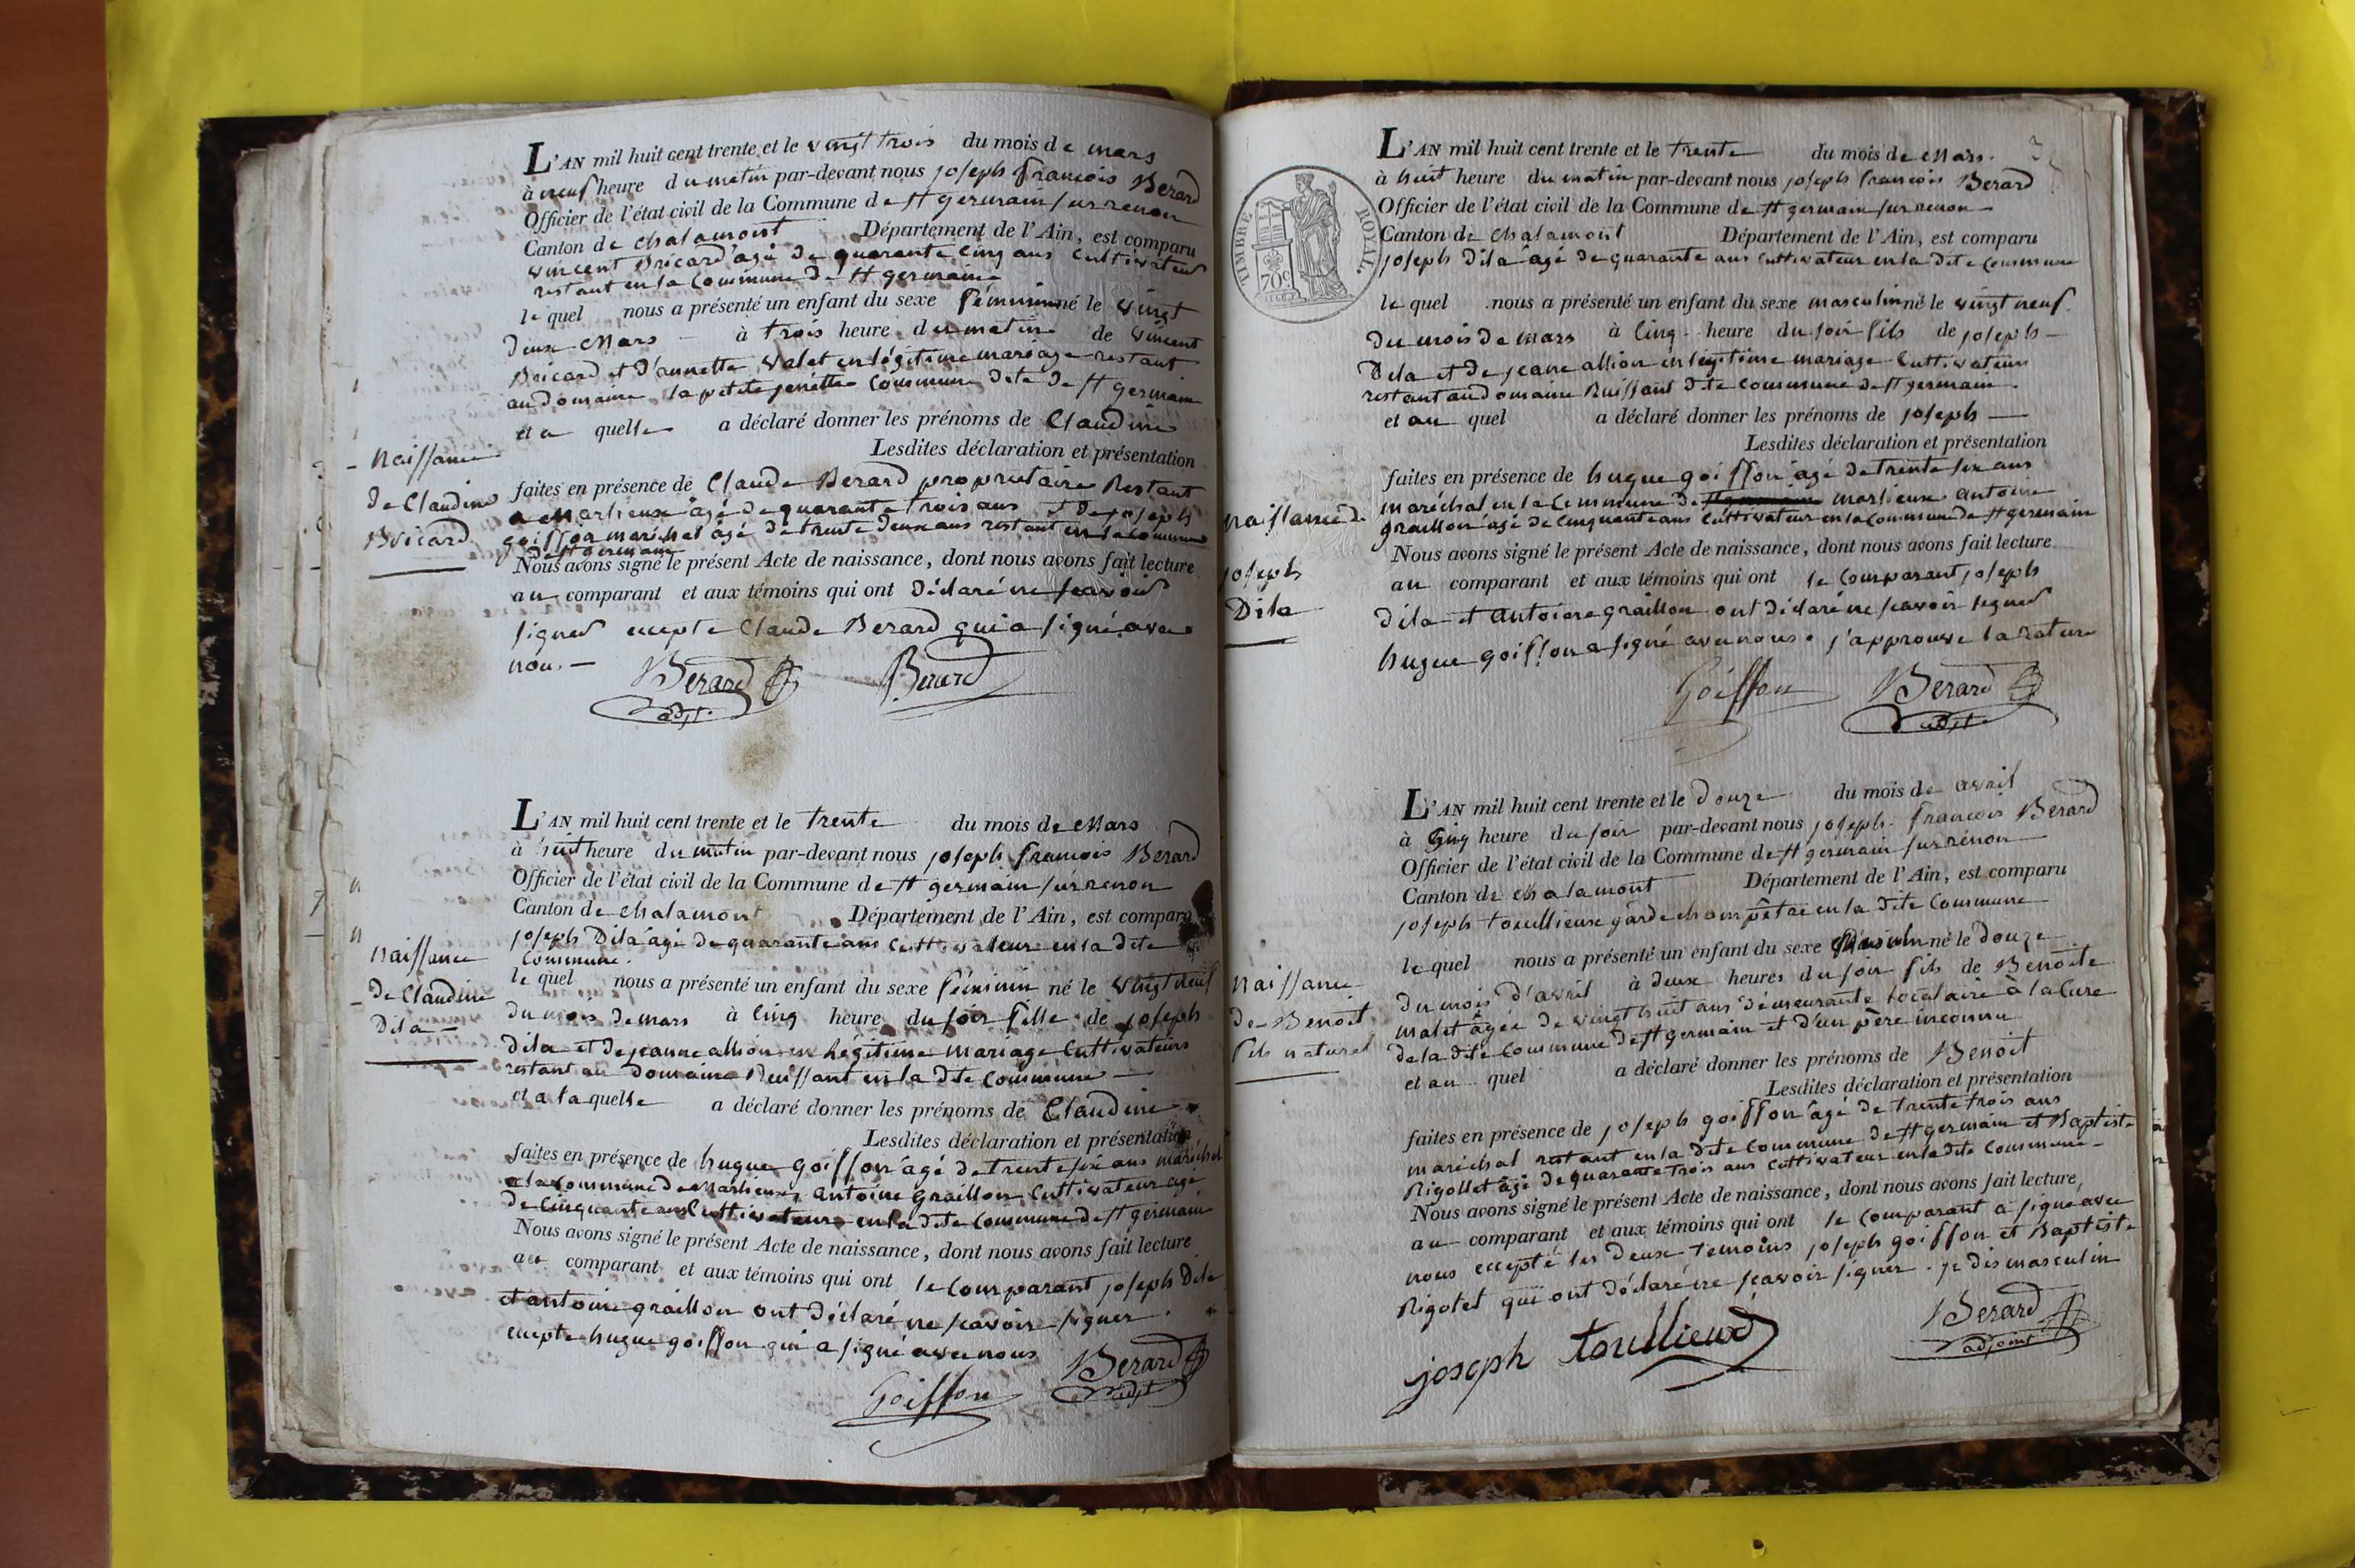 L'AN mil huit cent trente et le vingt trois du mois de mars
à neuf heure du matin par-devant nous joseph françois Berard
Officier de l'état civil de la Commune de st germain sur renon
Canton de chalamont Département de l'Ain, est comparu
vincent Bricard âgé de quarante cinq ans cultivateur
restant en la commune de st germain
le quel nous a présenté un enfant du sexe féminin né le vingt
deux mars à trois heure du matin de vincent
Bricard et d'annette valet en légitime mariage restant
au domaine la petite commune dite de st germain
et a quelle a déclaré donner les prénoms de Claudine
Lesdites déclaration et présentation
naissance
de Claudine
Bricard
faites en présence de Claude Berard propriétaire Restant
a Marlieux âgé de quarante trois ans et de joseph
goiffon maréchal âgé de trente deux ans restant en la commune
de st germain
Nous avons signé le présent Acte de naissance, dont nous avons fait lecture
au comparant et aux témoins qui ont déclaré ne scavoir
signer excepte Claude Berard qui a signé avec
nous
Berard Berard
adjt
L'AN mil huit cent trente et le trente du mois de Mars
à huit heure du matin par-devant nous joseph françois Berard
Officier de l'état civil de la Commune de st germain sur renon
Canton de chalamont Département de l'Ain, est comparu
joseph Dila âgé de quarante ans cultivateur en la dite
commune
naissance
de Claudine
Dila
le quel nous a présenté un enfant du sexe féminin né le vingt neuf
du mois de mars à cinq heure du soir fille de joseph
Dila et de jeanne allion en légitime mariage cultivateurs
restant au domaine Ruissant en la dite commune
et a la quelle a déclaré donner les prénoms de Claudine
Lesdites déclaration et présentation
faites en présence de hugue goiffon âgé de trente six ans maréchal
a la commune de Marlieux, antoine graillon cultivateur âgé
de cinquante ans cultivateur en la dite commune de st germain
Nous avons signé le présent Acte de naissance, dont nous avons fait lecture
au comparant et aux témoins qui ont le comparant joseph Dila
et antoine graillon ont déclaré ne scavoir signer
excepte hugue goiffon qui a signé avec nous
Goiffon Berard
adjt
TIMBRE ROYAL
70c
L'AN mil huit cent trente et le trente du mois de Mars
à huit heure du matin par-devant nous joseph françois Berard
Officier de l'état civil de la Commune de st germain sur renon
Canton de chalamont Département de l'Ain, est comparu
joseph Dila âgé de quarante ans cultivateur en la dite commune
le quel nous a présenté un enfant du sexe masculin né le vingt neuf
du mois de mars à cinq heure du soir fils de joseph
Dila et de jeane allion en légitime mariage cultivateurs
restant au domaine Ruissant dite commune de st germain
et au quel a déclaré donner les prénoms de joseph
Lesdites déclaration et présentation
naissance de
joseph
Dila
faites en présence de hugue goiffon âgé de trente six ans
maréchal en la commune de st germain marlieux antoine
graillon âgé de cinquante ans cultivateur en la commune de st germain
Nous avons signé le présent Acte de naissance, dont nous avons fait lecture
au comparant et aux témoins qui ont le comparant joseph
dila et antoine graillon ont déclaré ne scavoir signer
hugue goiffon a signé avec nous. j'approuve la rature
Goiffon Berard
adjt
L'AN mil huit cent trente et le douze du mois de avril
à cinq heure du soir par-devant nous joseph françois Berard
Officier de l'état civil de la Commune de st germain sur renon
Canton de chalamont Département de l'Ain, est comparu
joseph toullieux garde champêtre en la dite Commune
le quel nous a présenté un enfant du sexe masculin né le douze
naissance
de Benoit
fils naturel
du mois d'avril à deux heures du soir fils de Benoite
malet âgée de vingt huit ans demeurante locataire à la cure
de la dite commune de st germain et d'un père inconnu
et au quel a déclaré donner les prénoms de Benoit
Lesdites déclaration et présentation
faites en présence de joseph goiffon âgé de trente trois ans
maréchal restant en la dite commune de st germain et Baptiste
Rigollet âgé de quarante trois ans cultivateur en la dite commune
Nous avons signé le présent Acte de naissance, dont nous avons fait lecture
au comparant et aux témoins qui ont le comparant a signé avec
nous excepté les deux témoins joseph goiffon et Baptiste
Rigolet qui ont déclaré ne scavoir signer. je dis masculin
joseph toullieux Berard
adjoint